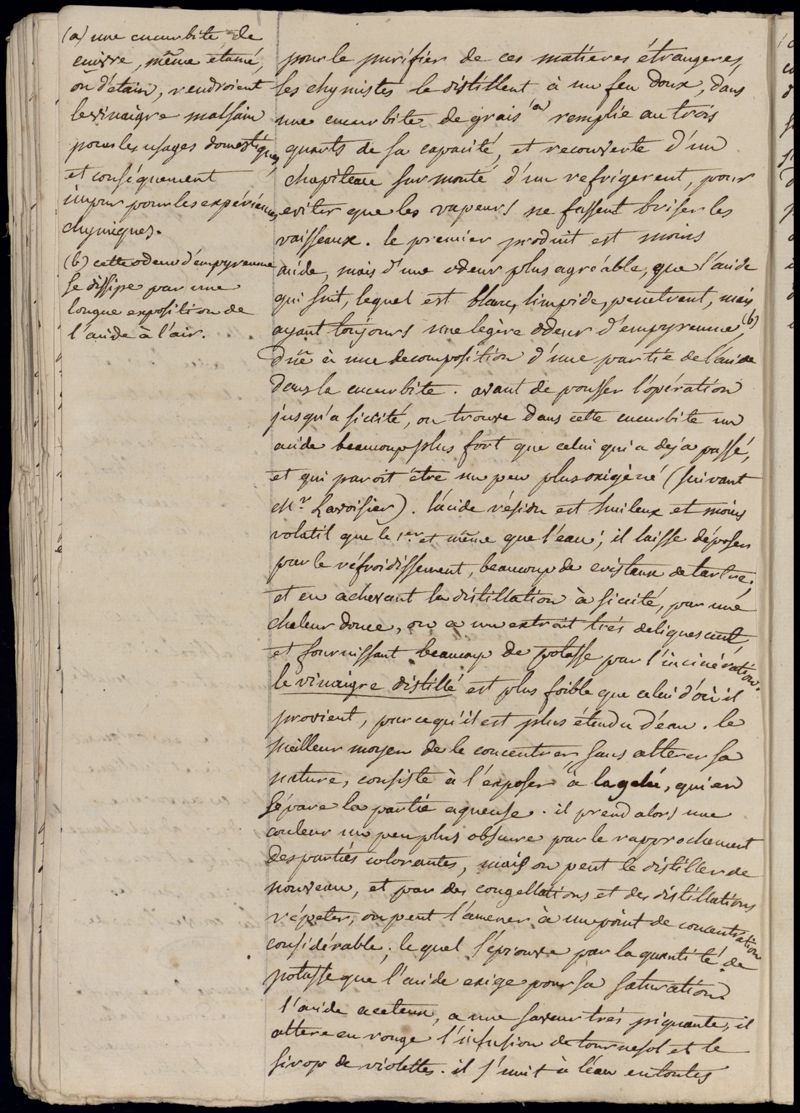 (a) une cucurbite de
cuivre, même étamé,
ou d'étain, rendroient
le vinaigre malsain
pour les usages domestiques,
et conséquement
impur pour les expériences
chymiques.
(b) cette odeur d'empyreume
se dissipe par une
longue exposition de
l'acide à l'air.
pour le purifier de ces matières étrangeres,
les chymistes le distillent à un feu doux, dans
une cucurbite de grais (a) remplie au trois
quarts de sa capacité, et recouverte d'un
chapiteau surmonté d'un refrigerent, pour
eviter que les vapeurs ne fassent briser les
vaisseaux. le premier produit est moins
acide, mais d'une odeur plus agréable, que l'acide
qui suit, lequel est blanc, limpide, penetrant, mais
ayant toujours une legère odeur d'empyreume (b)
düe à une decomposition d'une partie de l'acide
dans la cucurbite. avant de pousser l'opération
jusqu'a siccité, on trouve dans cette cucurbite un
acide beaucoup plus fort que celui qui a deja passé,
et qui paroit être un peu plus oxigèné (suivant
Mr. Lavoisier). l'acide résidu est huileux et moins
volatil que le 1er et même que l'eau; il laisse déposer
par le réfroidissement, beaucoup de cristaux de tartre;
et en achevant la distillation à sicité, par une
chaleur douce, on a un extrait trés deliquescent,
et fournissant beaucoup de potasse par l'incinération.
le vinaigre distillé est plus foible que celui d'où il
provient, parce qu'il est plus étendu d'eau. le
meilleur moyen de le concentrer, sans alterer sa
nature, consiste à l'exposer à la gelée, qui en
sépare la partie aqueuse. il prend alors une
couleur un peu plus obscure par le rapprochement
des partiés colorantes, mais on peut le distiller de
nouveau, et par des congellations et des distillations
répeteés, on peut l'amener a un point de concentration
considérable; lequel s'éprouve par la quantité de
potasse que l'acide exige pour sa saturation.
l'acide aceteux, a une saveur trés piquante, il
altere en rouge l'infusion de tournesol et le
sirop de violettes. il s'unit à l'eau en toutes